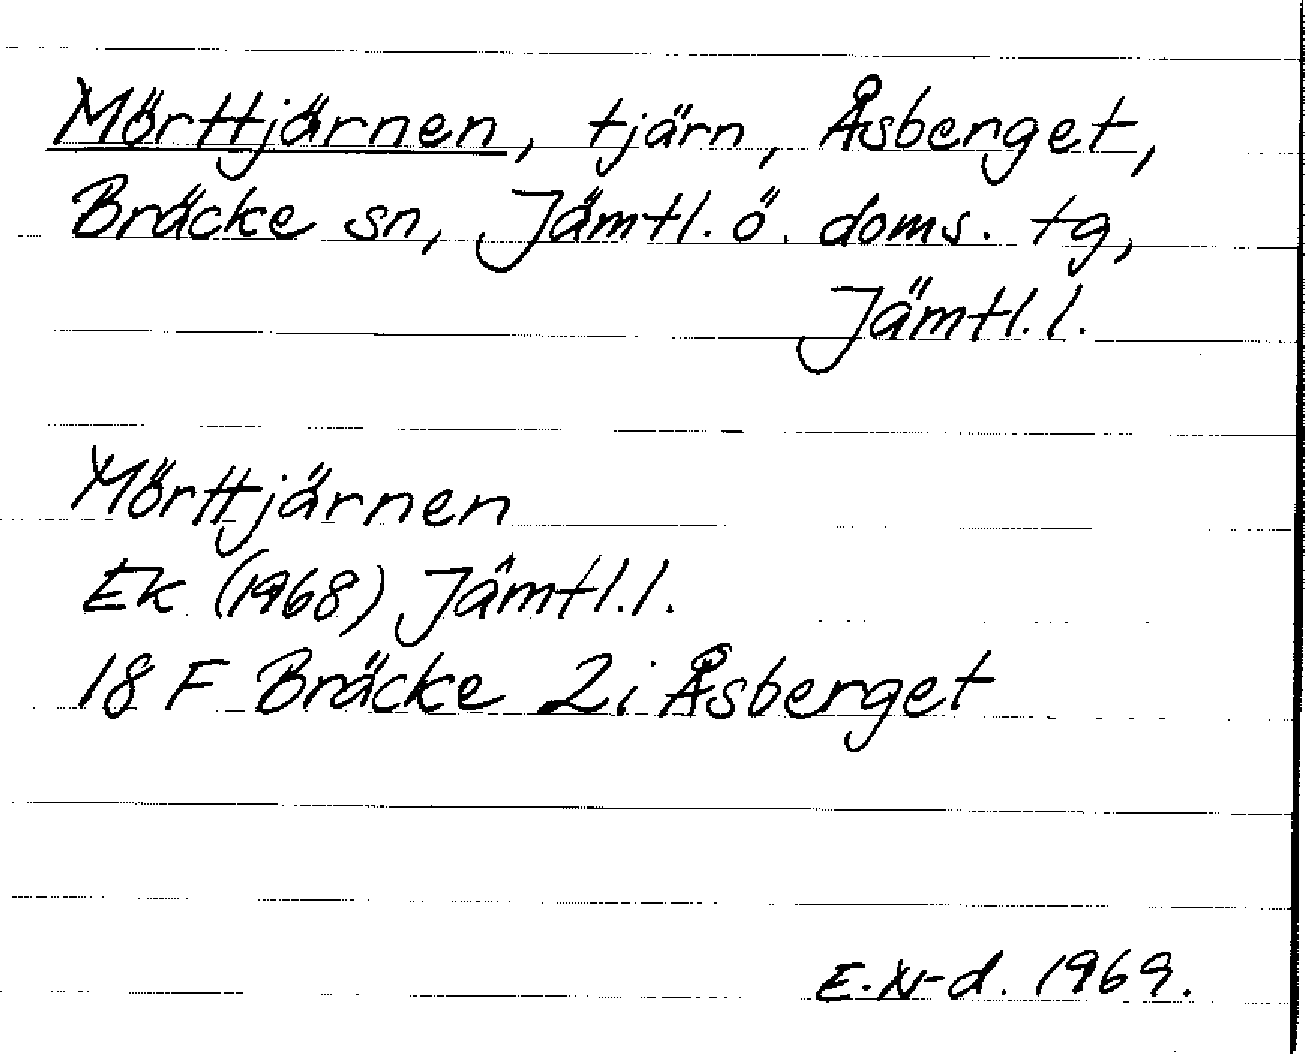 Mörttjärnen, tjärn, Åsberget,
Bräcke sn, Jämtl. ö. doms. tg,
Jämtl. l.
Mörttjärnen
Ek (1968) Jämtl. l.
18 F Bräcke 2i Åsberget
E. N-d. 1969.